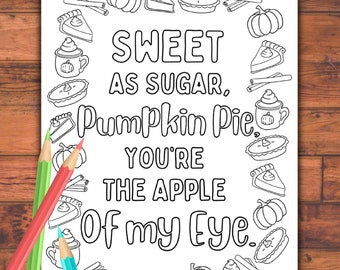 SWEET
AS SUGAR,
Pumpkin Pie,
YOU'RE
THE APPLE
Of my Eye.